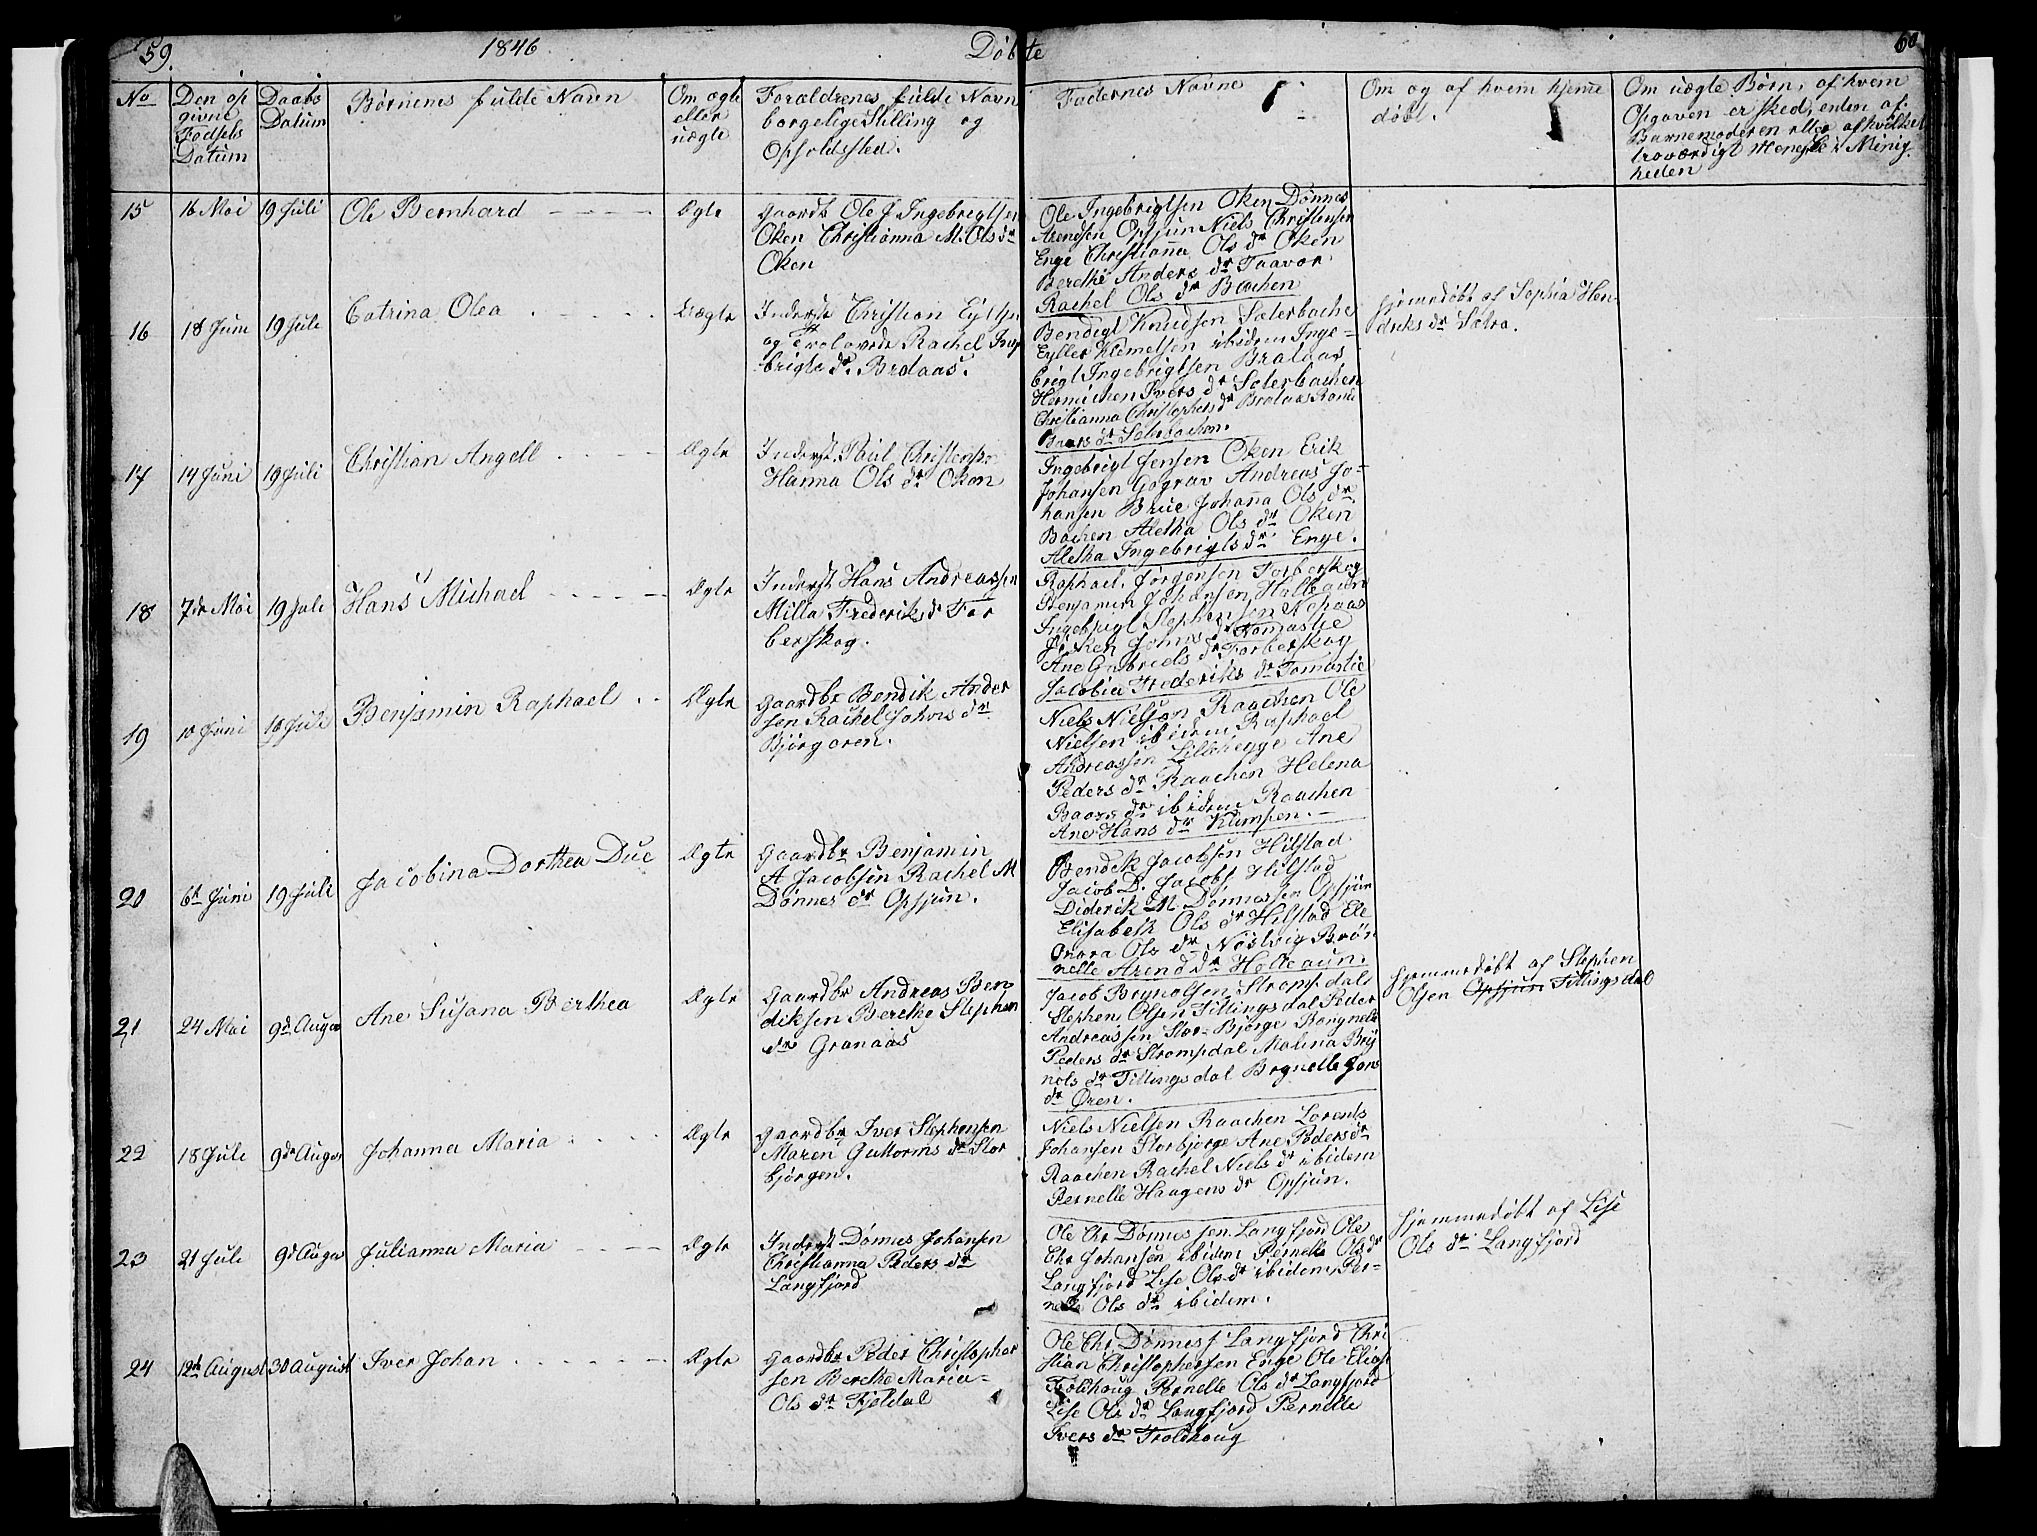 59.
1846
Döbte
60
No
Den op
givne
Fødsels
Datum
Daabs
Datum
Børnenes fulde Navn
Om ægte
eller
uægte
Forældrenes fulde Navn
borgelige Stilling og
Opholdsted.
Fadernes Navne
Om og af hvem hjemme
døbt.
Om uægte Børn, af hvem
Opgaven er sked, enten af
Barnemoderen eller af hvilket
troværdigt Menske i Minig
heden
15 16 Mai 19 Juli Ole Bernhard Ægte
Gaardb Ole J Ingebrigtsen
Oken Christianna M. Ols dr
Oken
Ole Ingebrigtsen Oken Dønnes
Arendsen Opsjun Niels Christensen
Enge Christianna Ols dr Oken
Berethe Anders dr Taavær
Rachel Ols dr Bachen
16 18 Juni 19 Juli Catrina Olea Uægte
Inderst Christian Eylertsn
og Trolovede Rachel Inge
brigts dr. Brataas.
Bendigt Knudsen Sæterbache
Eyller Klemetsen ibidem Inge-
brigt Ingebrigtsen Brataas
Hermichen Ivers dr Sæterbachen
Christianna Christophers dr Brataas
Baars dr Sæterbachen.
Hjemmedøbt af Sophia Hen
driks dr Sætra.
17 14 Juni 19 Juli Christian Angell Ægte
Inderst Paul Christensn
Hanna Ols dr Oken
Ingebrigt Jensen Oken Erik
Johansen Gograv Andreas Jo-
hansen Brue Johanna Ols dr
Bachen Aletha Ols dr Oken
Aletha Ingebrigts dr Enge.
18 7de Mai 19 Juli Hans Michael Ægte
Inderst Hans Andreassen
Milla Frederiks dr For
berskog.
Raphael Jørgensen Forberskog
Benjamin Johansen Halleaun
Ingebrigt Stephensen Nepaas
Johns dr Tomaslie
Ane Gabriels dr Forberskog
Jacobia Frederiks dr Tomaslie
19 10 Juni 19 Juli Benjamin Raphael Ægte
Gaardbr Bendik Ander
sen Rachel Johns dr
Bjørgaren.
Niels Nielsen Raachen Ole
Nielsen ibidem Raphael
Andreassen Lillehegge Ane
Peders dr Raachen Helena
Baars dr ibidem Raachen
Ane Hans dr Klumpen.
20 6te Juni 19 Juli Jacobina Dorthea Due Ægte
Gaardbr Benjamin
A Jacobsen Rachel M
Dønnes dr Opsjun.
Bendik Jacobsen Hilstad
Jacob D. Jacobs Hilstad
Diderik M. Dønnessen Opsjun
Elisabeth Ols dr Hilstad Ele
onora Ols dr Nøstvig Bør
nelle Arend dr Holleaun.
21 24 Mai 9de August Ane Susana Berthea Ægte
Gaardbr Andreas Ben
diksen Berethe Stephen
dr Granaas
Jacob Brynolsen Strompdal
Stephen Olsen Fillingsdal Peder
Andreassen Stor-Bjørge Rongnele
Peders dr Strompdal Malina Bry
nols dr Fillingsdal Brynelle Jons
dr Øren.
Hjemmedøbt af Stephen
Olsen Opsjun Fillingsdal
22 18 Juli 9de August Johanna Maria Ægte
Gaardbr Iver Stephensen
Maren Guttorms dr Stor
bjørgen.
Niels Nielsen Raachen Lorents
Johansen Storbjørge Ane Peders dr
Raachen Rachel Niels dr ibidem
Pernelle Haagens dr Opsjun.
23 21 Juli 9de August Julianna Maria Ægte
Inderst Dønnes Johansen
Christianna Peders dr
Langfjord
Ole Chr Dønnessen Langfjord Ole
Chr Johansen ibidem Pernelle Ols dr
Langfjord Lise Ols dr ibidem Per-
nelle Ols dr ibidem.
Hjemmedøbt af Lise
Ols dr Langfjord
24 12te August 30 August Iver Johan Ægte
Gaardbr Peder Christopher
sen Berethe Maria
Ols dr Fjeldal
Ole Chr. Dønnes Langfjord Chri
stian Christophersen Enge Ole Elias
Troldhoug Pernelle Ols dr Langfjord
Lise Ols dr Langfjord Pernelle
Ivers dr Troldhoug